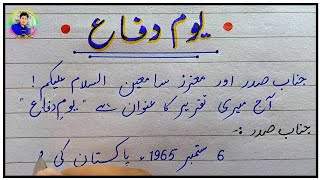 یوم دفاع
جناب صدر اور معزز سامعین السلام علیکم!
آج میری تقریر کا عنوان ہے "یومِ دفاع"
جناب صدر :-
6 ستمبر 1965ء پاکستان کی و